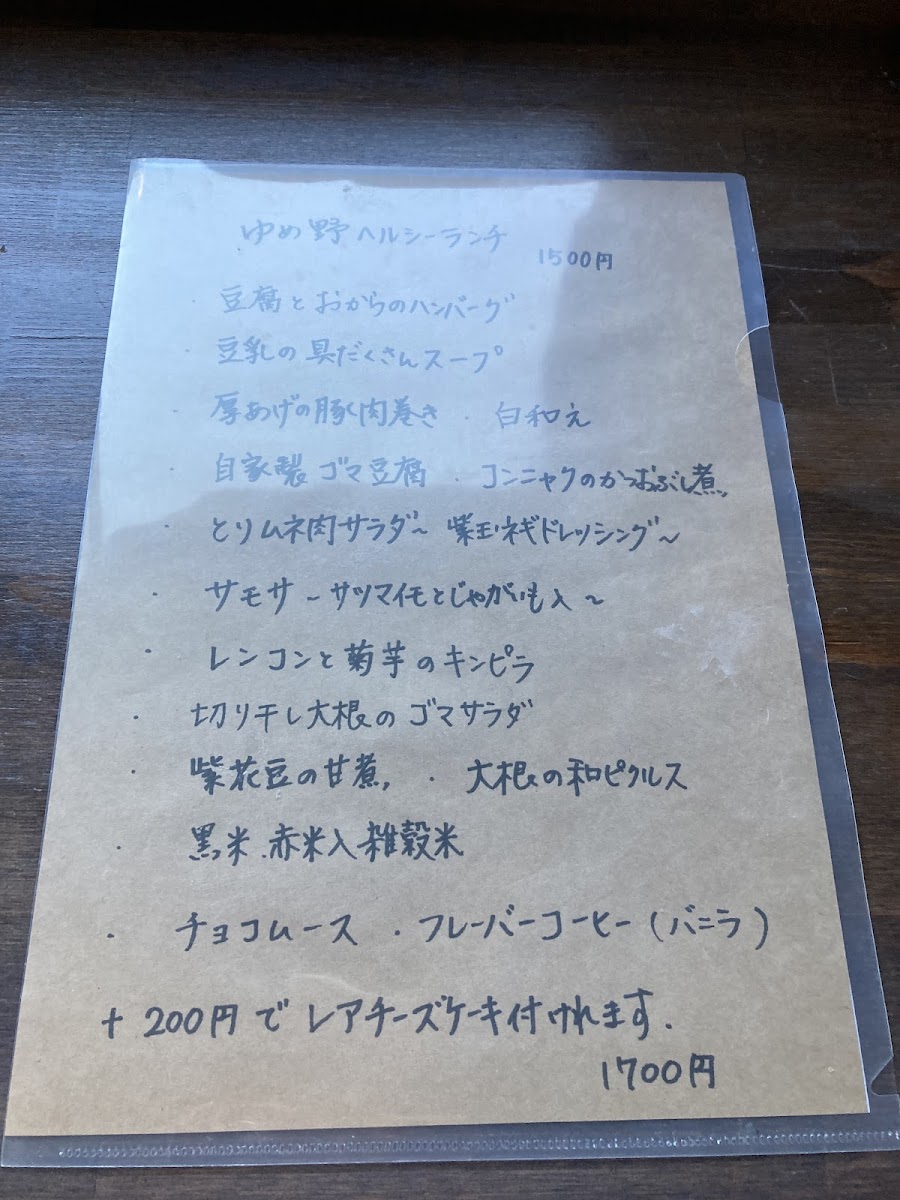 ゆめ野ヘルシーランチ
1500円
豆腐とおからのハンバーグ
・ 豆乳の具だくさんスープ
・ 厚あげの豚肉巻き ・ 白和え
・ 自家製ゴマ豆腐 ・ コンニャクのかつおぶし煮
・ とりムネ肉サラダ~ 紫玉ネギドレッシング~
・ サモサ ~ サツマイモとじゃがいも入 ~
・ レンコンと菊芋のキンピラ
・ 切り干し大根のゴマサラダ
・ 紫花豆の甘煮 ・ 大根の和ピクルス
・ 黒米、赤米入雑穀米
・ チョコムース ・ フレーバーコーヒー(バニラ)
+ 200円でレアチーズケーキ付けれます.
1700円